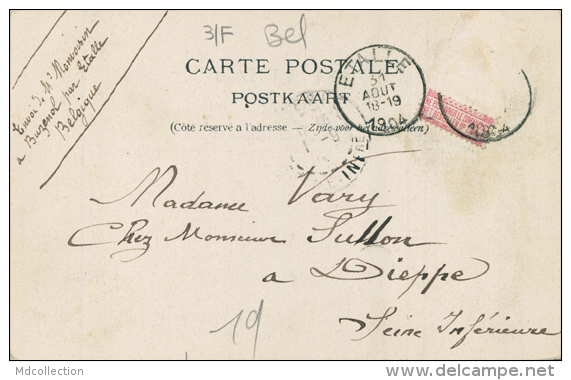 3/F Bel
Envoi de Mr Monvoisin
a Buzenol par Etalle
Belgique
CARTE POSTALE
POSTKAART
(Côté réservé a l'adresse — Zijde voor het adres alleen)
ETALLE
31
AOUT
18-19
1904
Madame Vary
Chez Monsieur Sullon
a Dieppe
Seine Inférieure
19
Mdcollection
www.delcampe.net